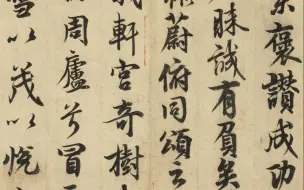 褒讚成功
昧誠有負矣
蔚俯同頌云
我軒宮奇樹
周廬兮冒
雪以茂以悅